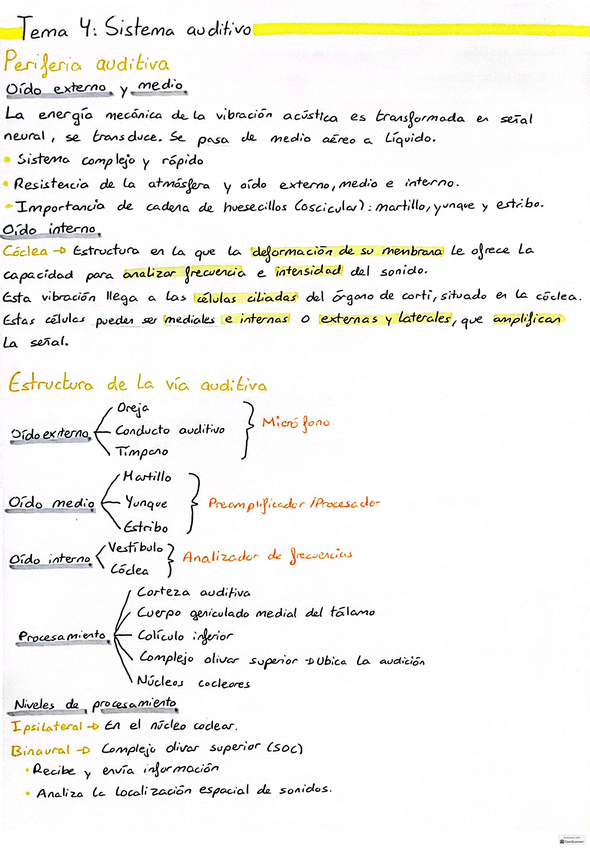 Tema 4: Sistema auditivo
Periferia auditiva
Oído externo y medio
La energía mecánica de la vibración acústica es transformada en señal
neural, se transduce. Se pasa de medio aéreo a líquido.
• Sistema complejo y rápido
• Resistencia de la atmósfera y oído externo, medio e interno.
• Importancia de cadena de huesecillos (oscicular): martillo, yunque y estribo.
Oído interno
Cóclea → Estructura en la que la deformación de su membrana le ofrece la
capacidad para analizar frecuencia e intensidad del sonido.
Esta vibración llega a las células ciliadas del órgano de corti, situado en la cóclea.
Estas células pueden ser mediales e internas o externas y laterales, que amplifican
la señal.
Estructura de la vía auditiva
Oreja
Oído externo Conducto auditivo Micrófono
Tímpano
Martillo
Oído medio Yunque Preamplificador /Procesador
Estribo
Oído interno Vestíbulo Analizador de frecuencias
Cóclea
Corteza auditiva
Cuerpo geniculado medial del tálamo
Procesamiento Colículo inferior
Complejo olivar superior → Ubica la audición
Núcleos cocleares
Niveles de procesamiento
Ipsilateral → En el núcleo coclear.
Binaural → Complejo olivar superior (SOC)
• Recibe y envía información
• Analiza la localización espacial de sonidos.
CamScanner